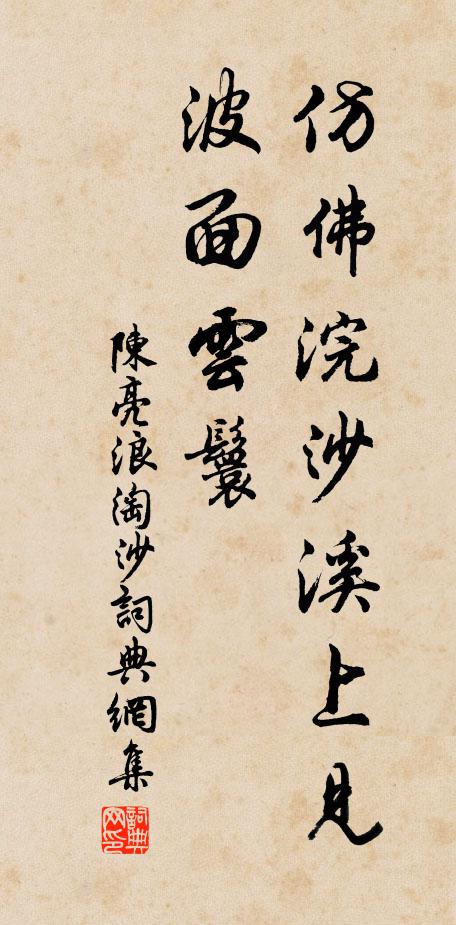 仿佛浣沙溪上見
波面雲鬟
陳亮浪淘沙詞典網集
詞典网印